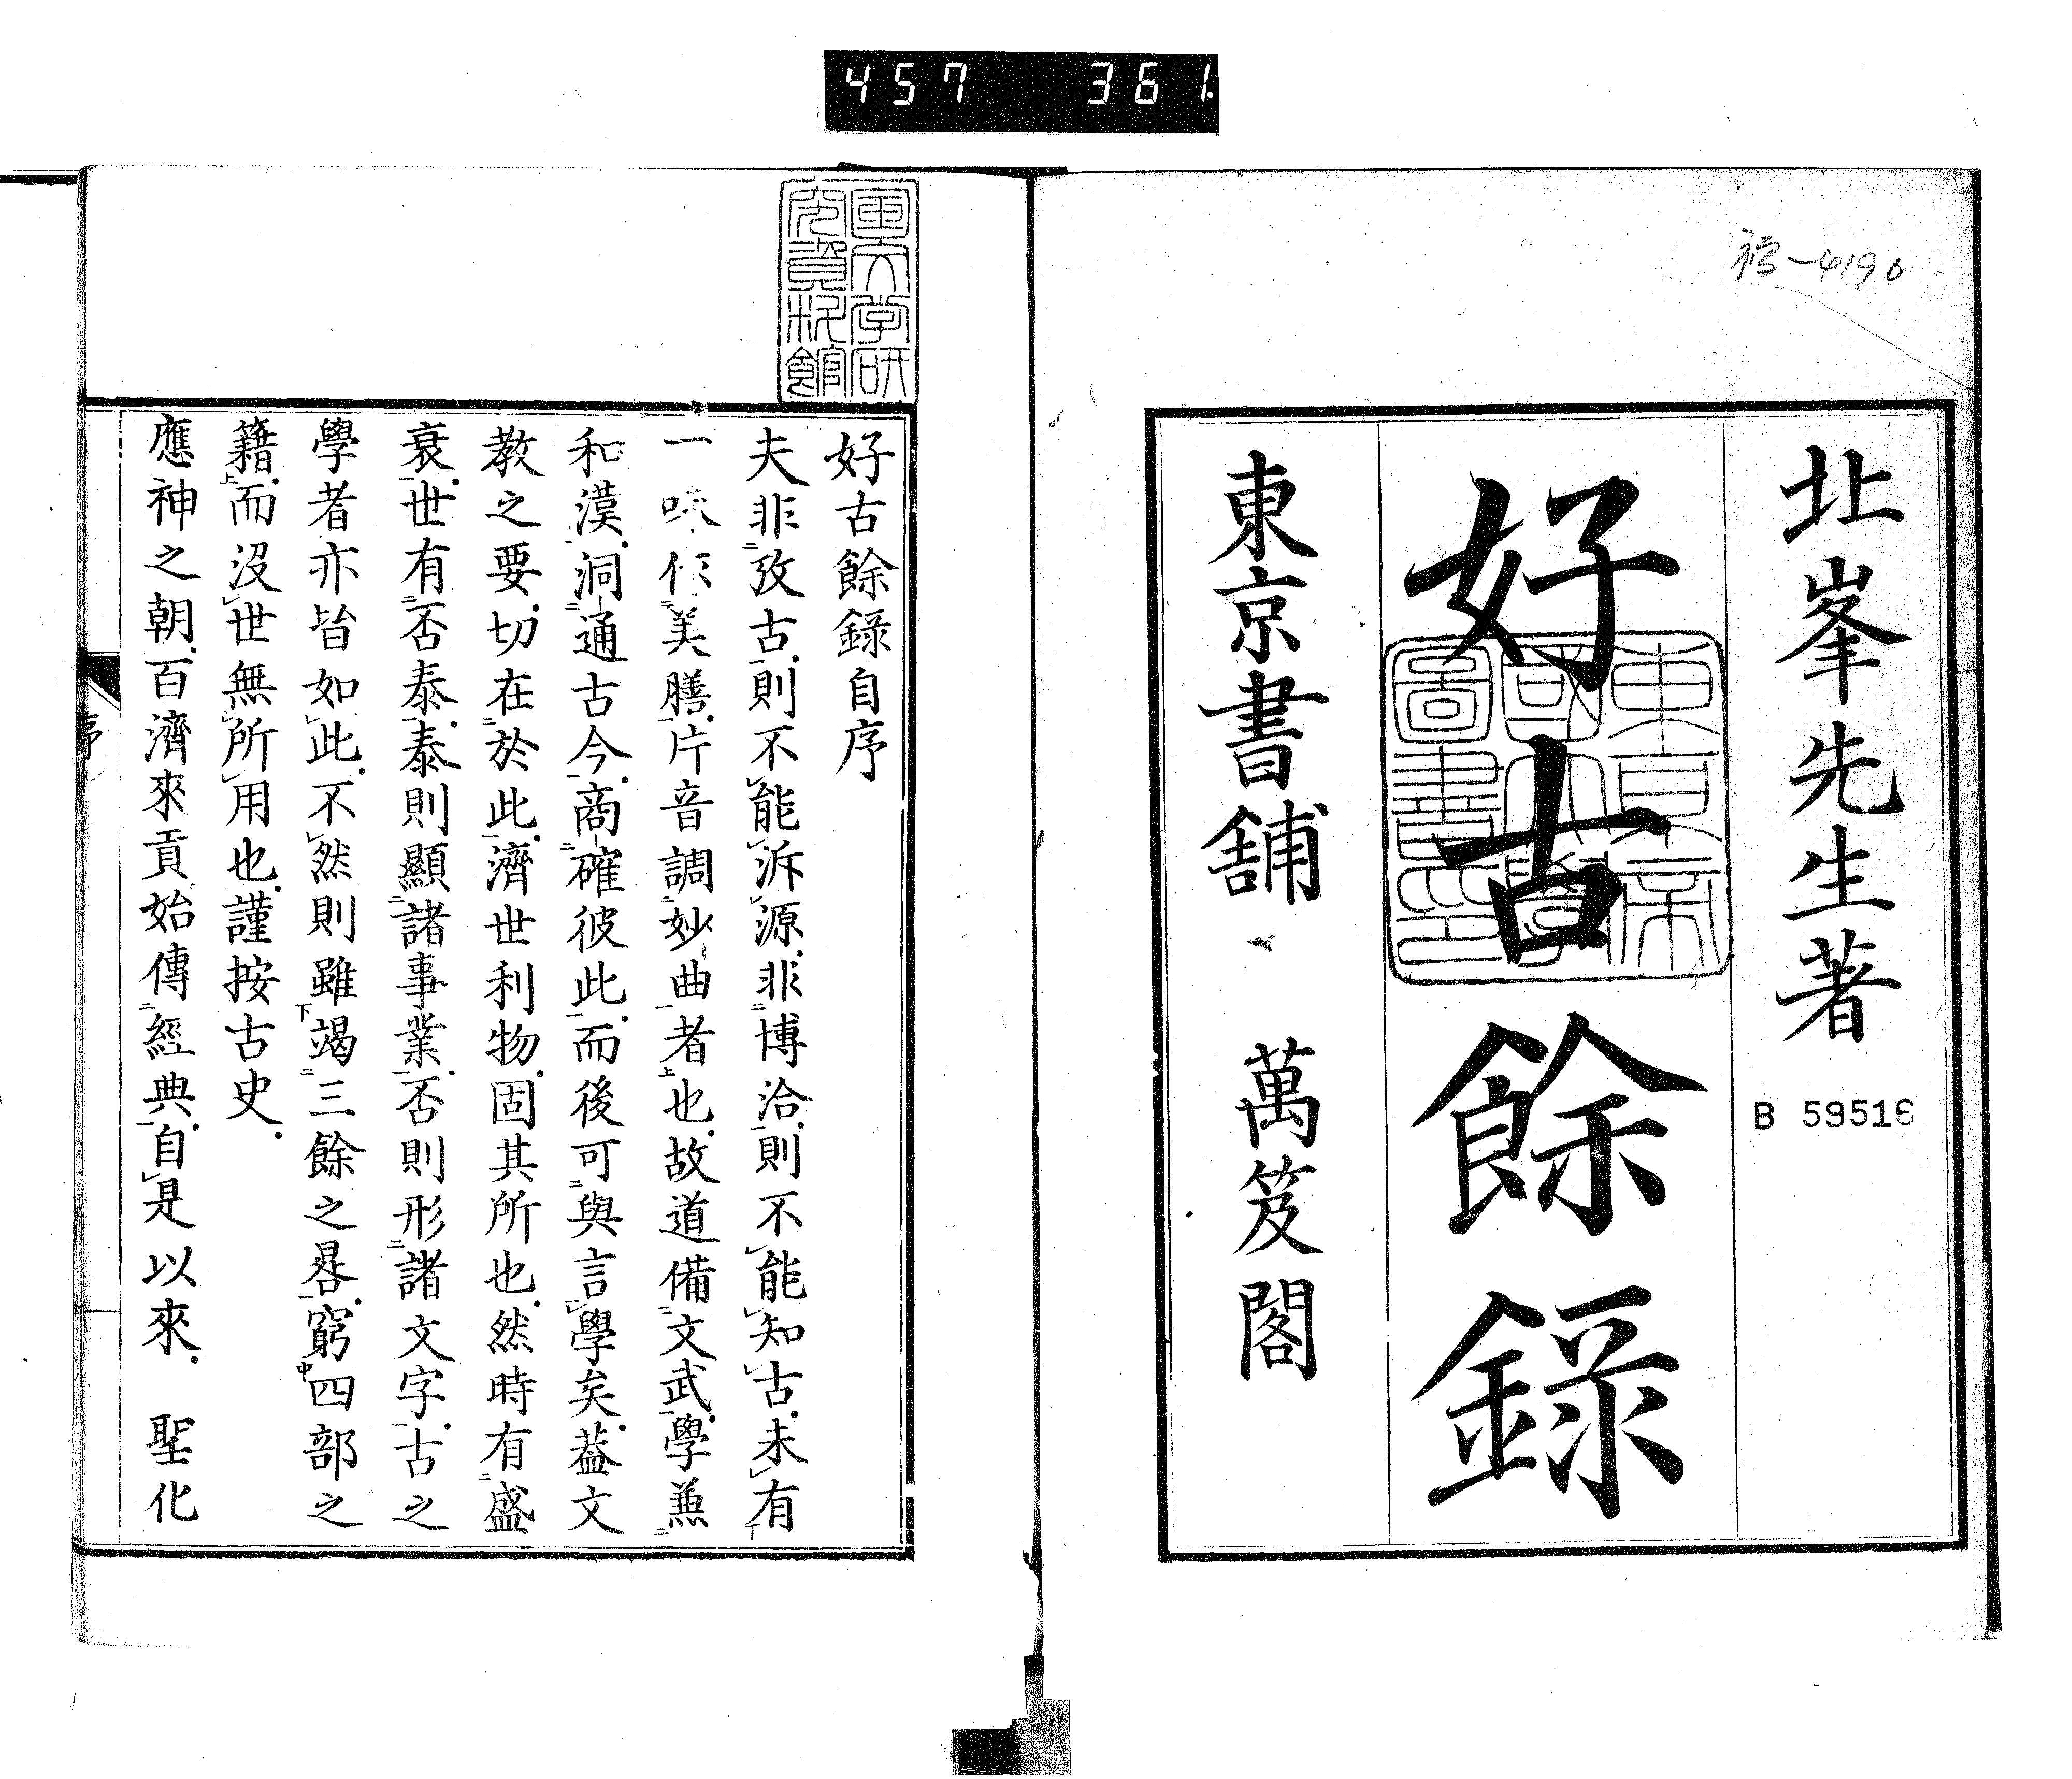 457 361
北峯先生著
B 59516
好古餘錄
東京書舖 萬笈閣
国文学研
究資料館
好古餘錄自序
夫非攷古則不能泝源非博洽則不能知古未有
一味作美膳片音調妙曲者也故道備文武學兼
和漢洞通古今商確彼此而後可與言學矣蓋文
教之要切在於此濟世利物固其所也然時有盛
衰世有否泰泰則顯諸事業否則形諸文字古之
學者亦皆如此不然則雖竭三餘之晷窮四部之
籍而沒世無所用也謹按古史
應神之朝百濟來貢始傳經典自是以來 聖化
序